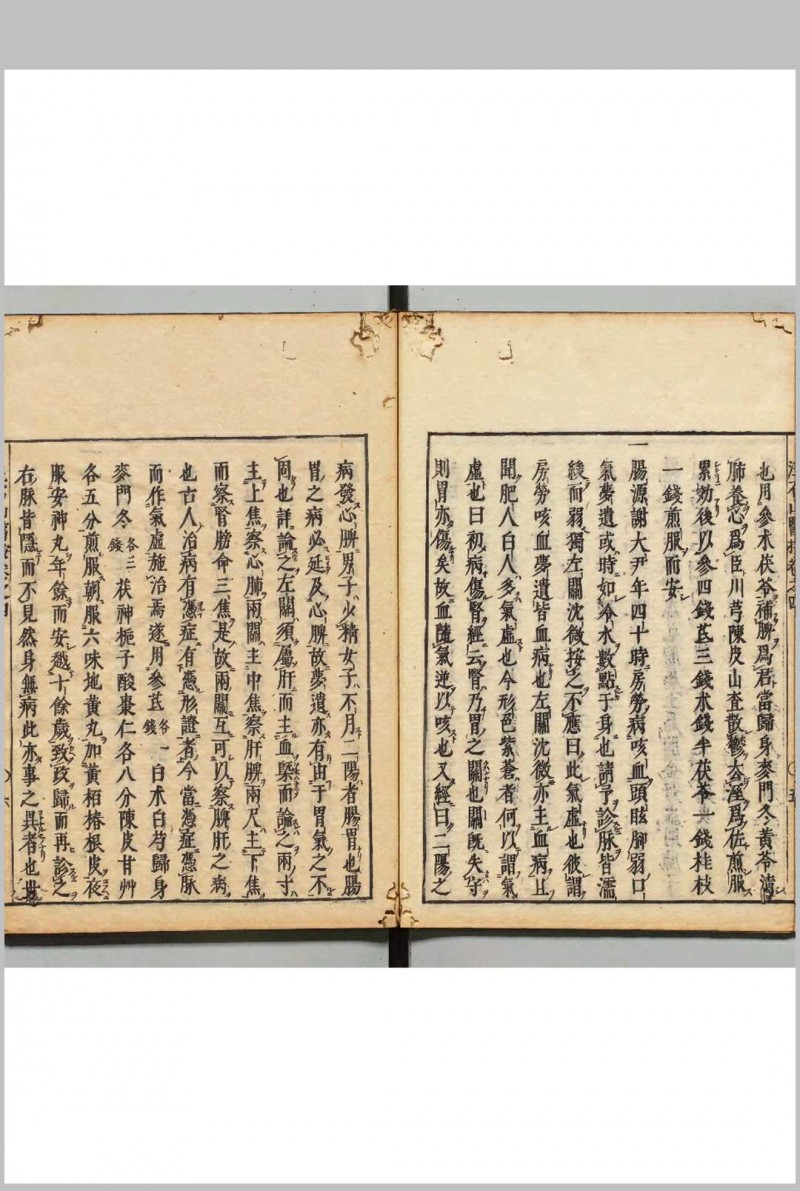 也用參朮茯苓補脾爲君當歸身麥門冬黃芩淸
肺養心爲臣川芎陳皮山查散鬱去溼爲佐煎服
累効後以參四錢芪三錢朮錢半茯苓一錢桂枝
一錢煎服而安
一腸源謝大尹年四十時房勞病咳血頭眩脚弱口
氣夢遺或時如冷水數點于身也請予診脉皆濡
緩而弱獨左關沈微按之不應曰此氣虛也彼謂
房勞咳血夢遺皆血病也左關沈微亦主血病且
聞肥人白人多氣虛也今形色紫蒼者何以謂氣
虛也曰初病傷腎經云腎乃胃之關也關旣失守
則胃亦傷矣故血隨氣逆以咳也又經曰二陽之
病發心脾男子少精女子不月二陽者腸胃也腸
胃之病必延及心脾故夢遺亦有由于胃氣之不
固也詳論之左關須屬肝而主血槩而論之兩寸
主上焦察心肺兩關主中焦察肝脾兩尺主下焦
而察腎膀命三焦是故兩關互可以察脾肝之病
也古人治病有憑症有憑形證者今當憑症憑脉
而作氣虛施治焉遂用參芪各一錢白朮白芍歸身
麥門冬各三錢茯神梔子酸棗仁各八分陳皮甘艸
各五分煎服朝服六味地黃丸加黃栢椿根皮夜
服安神丸年餘而安越十餘歲致政歸而再診之
右脉皆隱而不見然身無病此亦事之異者也世